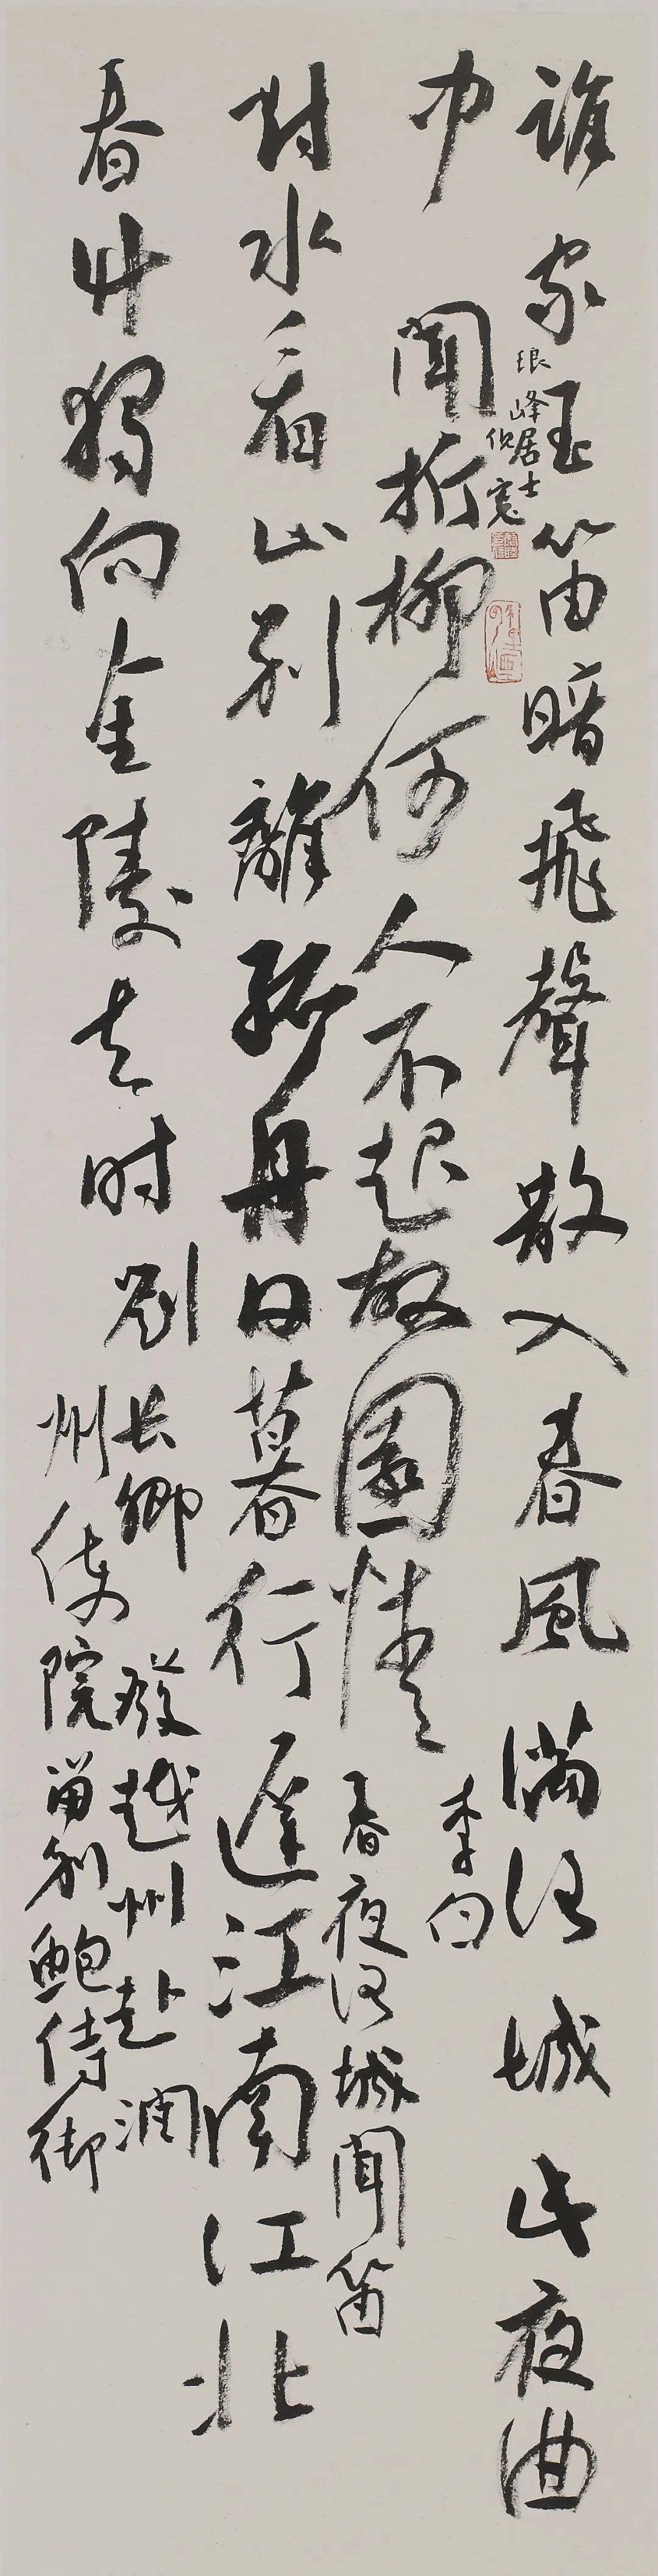 誰家玉笛暗飛聲散入春風滿洛城此夜曲
中聞折柳何人不起故園情
李白
春夜洛城聞笛
對水看山別離孤舟日暮行遲江南江北
春草獨向金陵去时
劉長卿
發越州赴潤
州使院留別鮑侍御
琅峰居士